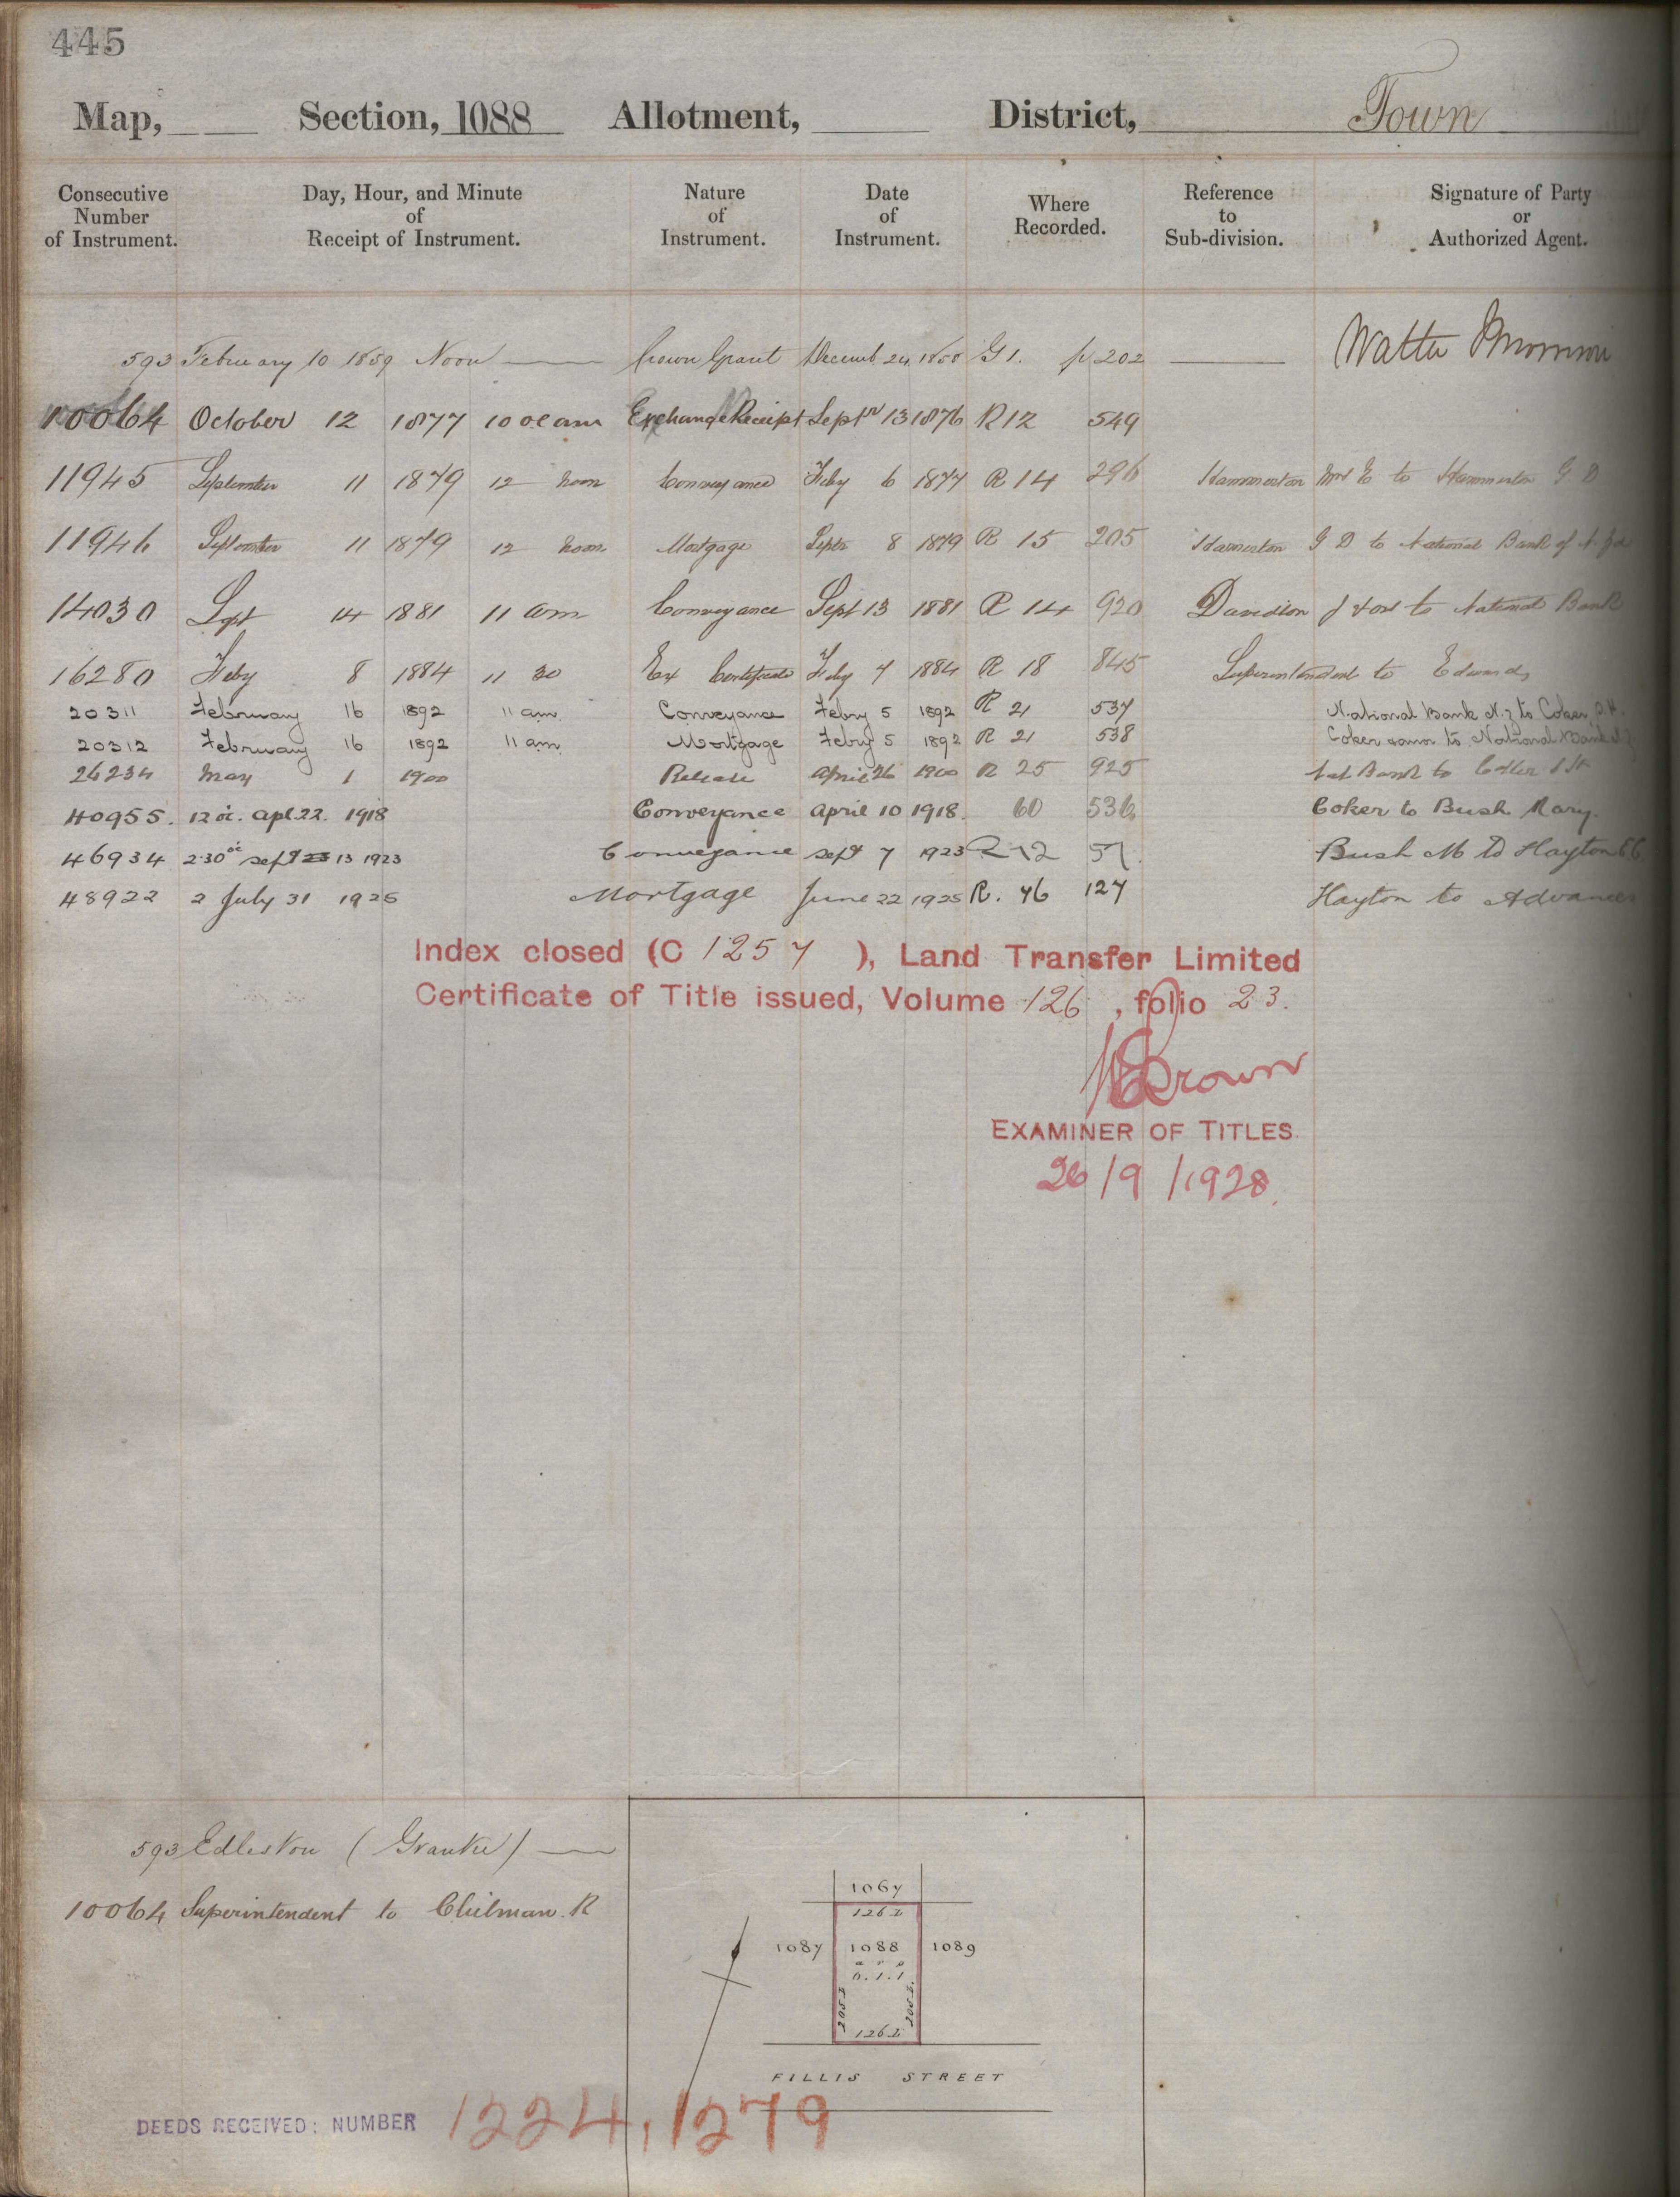 445
Map, Section, 1088 Allotment, District, Town
Consecutive Number of Instrument. Day, Hour, and Minute of Receipt of Instrument. Nature of Instrument. Date of Instrument. Where Recorded. Reference to Sub-division. Signature of Party or Authorized Agent.
593 February 10 1859 Noon Crown Grant Decemb. 24. 1858 G 1. p 202 Walter
10064 October 12 1877 10 am Exchange Receipt Septr 13 1876 R 12 549
11945 September 11 1879 12 noon Conveyance Feby 6 1877 R 14 296 Hammerton to Hammerton G D
11946 September 11 1879 12 noon Mortgage Septr 8 1879 R 15 205 G D to National Bank of N. Zd
14030 Sept 14 1881 11 am Conveyance Sept 13 1881 R 14 920 Davidson to National Bank
16280 Feby 8 1884 11 30 Ex Certificate Feby 7 1884 R 18 845 Superintendent to Edwards
20311 February 16 1892 11 am. Conveyance Febry 5 1892 R 21 537 National Bank N.Z to Coker
20312 February 16 1892 11 am. Mortgage Febry 5 1892 R 21 538 Coker to National Bank
26234 May 1 1900 Release April 26 1900 R 25 925 Nat Bank to
40955. 12 oc. apl. 22. 1918 Conveyance April 10 1918. 60 536 Coker to Bush Mary.
46934 2.30 oc Sept 13 1923 Conveyance Sept 7 1923 57. Bush M to Hayton
48922 2 July 31 1925 Mortgage June 22 1925 R. 46 127 Hayton to Advances
Index closed (C 1257 ), Land Transfer Limited
Certificate of Title issued, Volume 126 , folio 23.
Brown
EXAMINER OF TITLES
26/9/1928.
593 Edleston (Grantee)
10064 Superintendent to Chilman. R
1067
126 L
1087 1088 1089
a r p
0. 1. 1
205 L 205 L
126 L
FILLIS STREET
DEEDS RECEIVED: NUMBER 1224, 1279